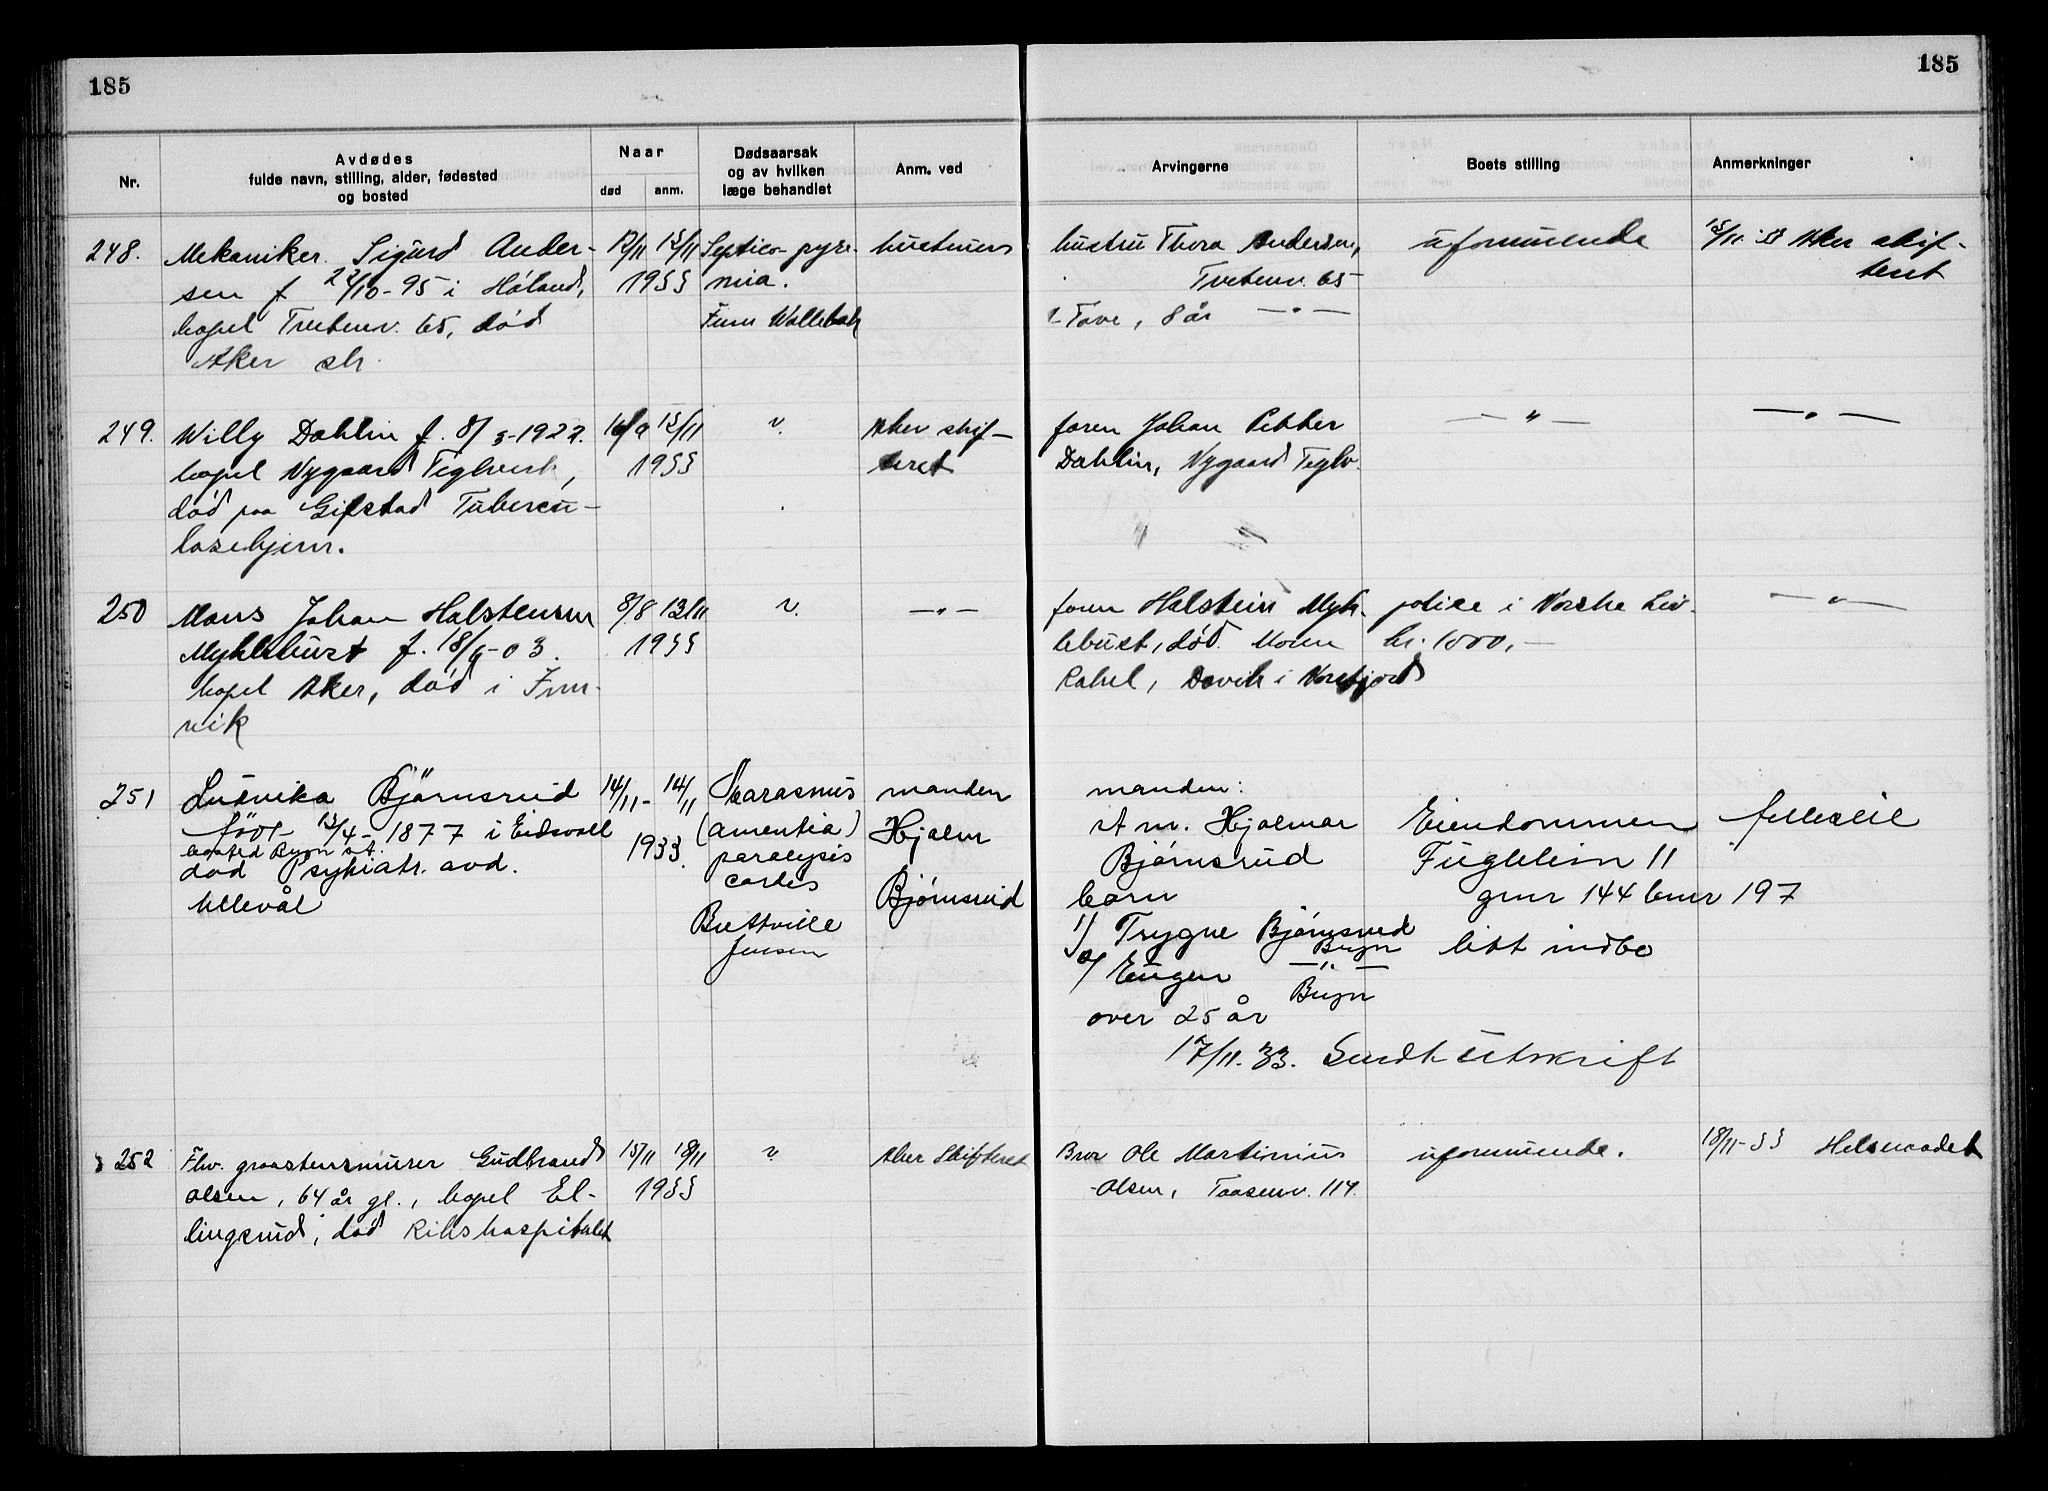 185
185
Nr.
Avdødes
fulde navn, stilling, alder, fødested
og bosted
Naar
død
anm.
Dødsaarsak
og av hvilken
læge behandlet
Anm. ved
Arvingerne
Boets stilling
Anmerkninger
248.
Mekaniker Sigurd Ander-
sen f 22/10-95 i Høland,
bopel Tvetenv. 65, død
Aker sh.
12/11 15/11
1933
Septico-pyre-
mia.
Finn
hustruen
hustru Thora Andersen,
Tvetenv. 65
Tove, 8 år — " —
uformuende
15/11-33 Aker skif-
teret
249.
Willy Dahlin f. 8/3-1922.
bopel Nygaard Teglverk,
død paa Gifstad Tubercu-
losehjem.
16/9 15/11
1933
?
Aker skif-
teret
faren Johan Petter
Dahlin, Nygaard Teglv.
— " —
— " —
250
Mons Johan Halstensen
Myklebust f. 18/9-03.
bopel Aker, død i Inn-
vik
8/8 13/11
1933
?
— " —
faren Halstein Myk-
lebust, død. Moren
Rakel, Davik i Nordfjord
police i Norske Liv
kr. 1000,-
— " —
251
Ludvika Bjørnsrud
født 13/4-1877 i Eidsvoll
bosted Bryn st.
død Psykiatr. avd.
Ullevål
14/11- 14/11
1933.
Marasmus
(amentia)
paralysis
cordis
Buttville
Jensen
manden
Hjalm
Bjørnsrud
manden:
st m. Hjalmar
Bjørnsrud
barn
1/ Trygve Bjørnsrud
Bryn
2/ Eugen — " —
Bryn
over 25 år
17/11.33. Sendt utskrift
Eiendommen
Fugleheim 11
gnr 144 bnr 197
litt indbo
felleseie
252
Fhv. graastensmurer Gudbrand
Olsen, 64 år gl., bopel El-
lingsrud, død Rikshospitalet
15/11 18/11
1933
?
Aker Skifteret
Bror Ole Martinius
Olsen, Taasenv. 114.
uformuende.
18/11-33 Helseraadet